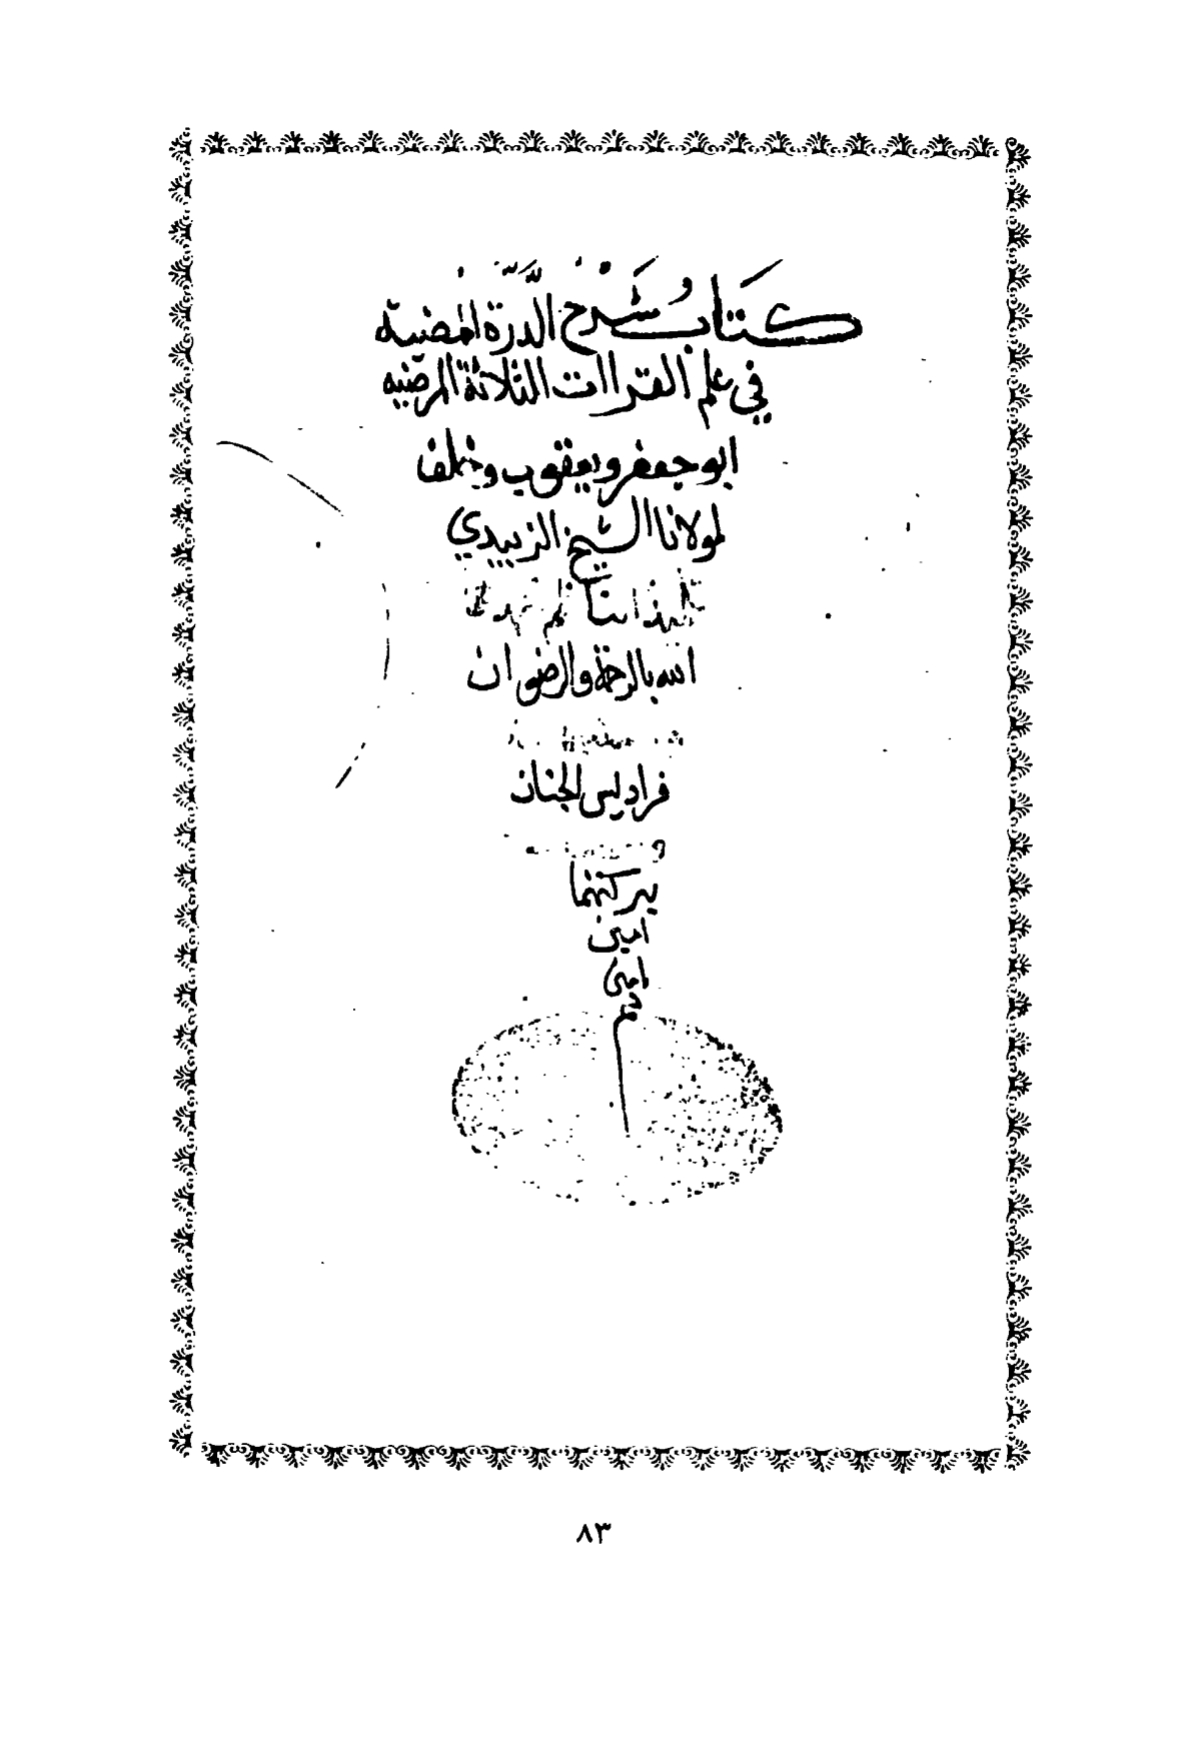 كتابُ شَرْح الدَّرّة المضيية
في علم القراات الثلاثة المرضيه
ابو جعفر ويعقوب وخلف
لمولانا الشيخ الزبيدي
الله بالرحمة والرضوان
فراديس الجنان
ببركتهما
امين
امين
م
٨٣